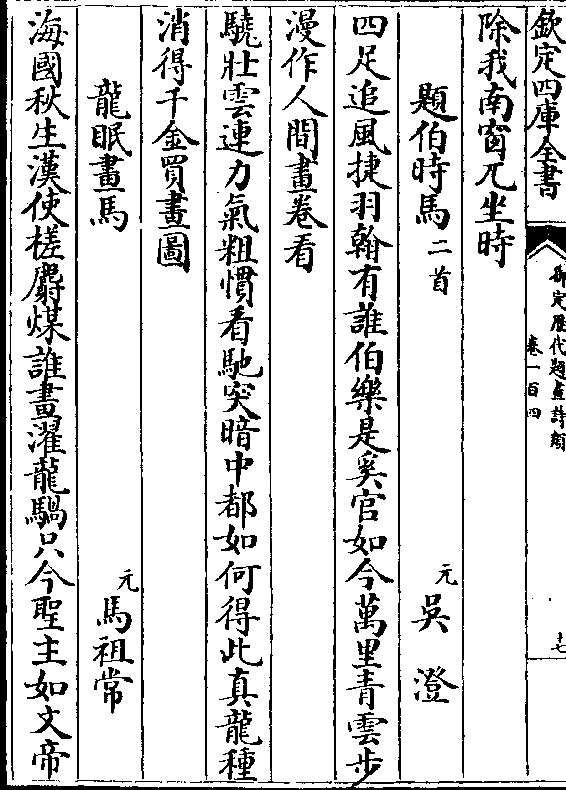 欽定四庫全書
御定歷代題畫詩類
卷一百四
十七
除我南窗兀坐時
題伯時馬二首
元吳澄
四足追風捷羽翰有誰伯樂是奚官如今萬里青雲步
漫作人間畫卷看
驍壯雲連力氣粗慣看馳突暗中都如何得此真龍種
消得千金買畫圖
龍眠畫馬
元馬祖常
海國秋生漢使槎麝煤誰畫濯龍騧只今聖主如文帝